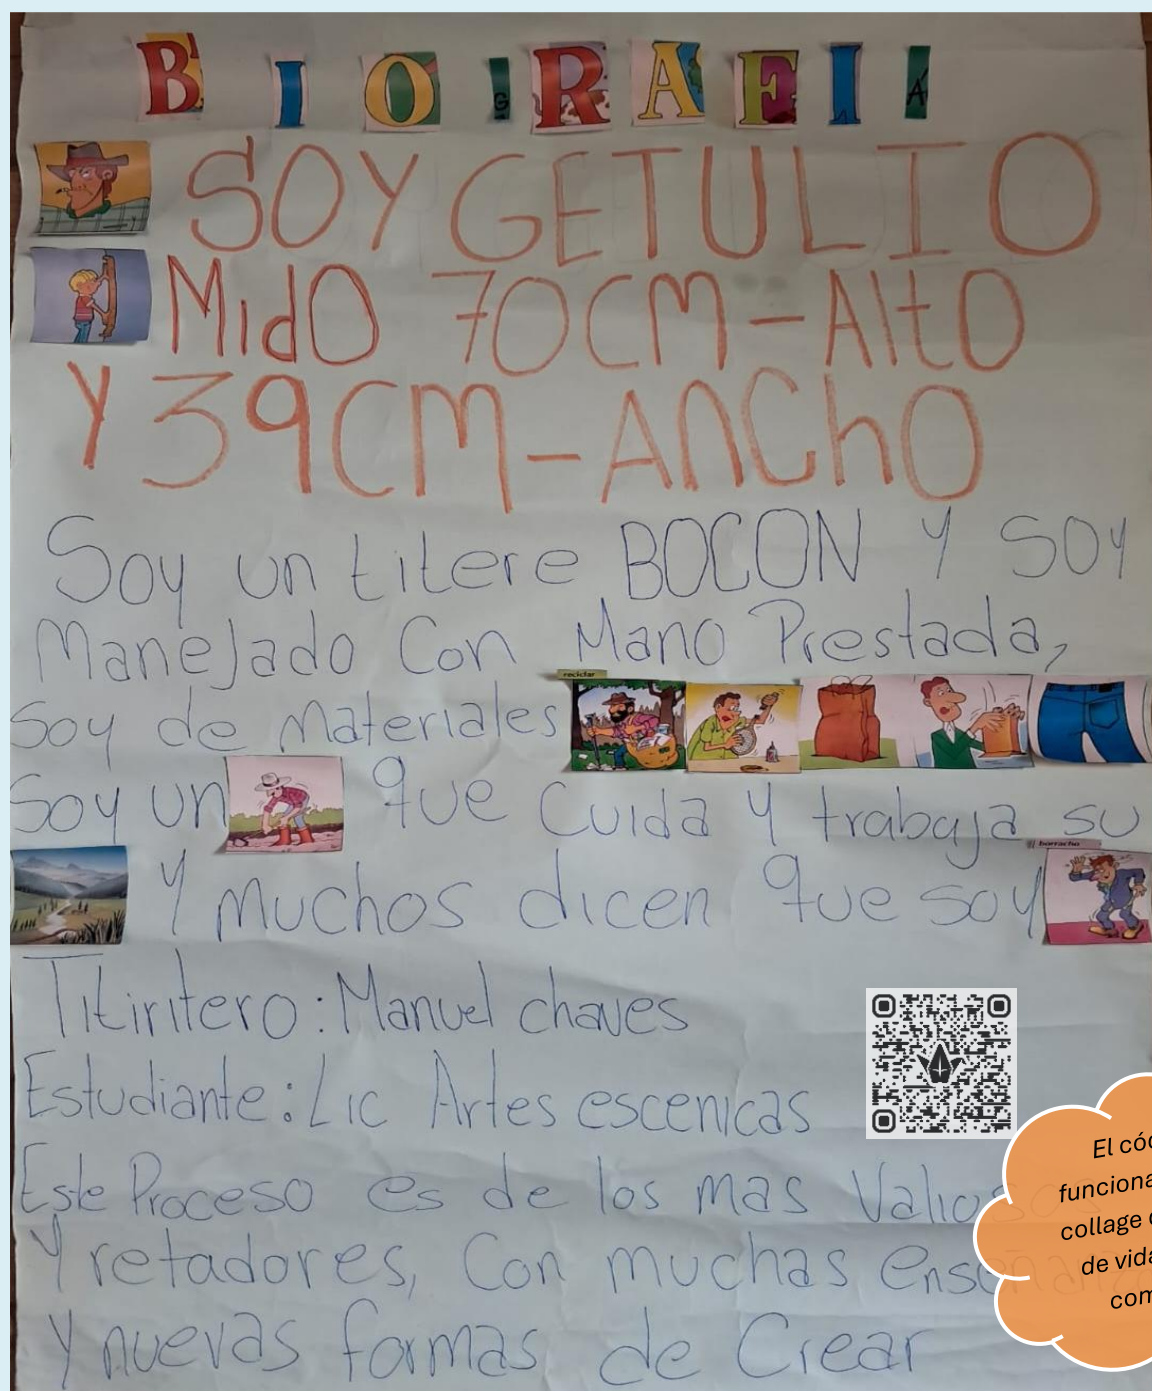 BIOGRAFIÁ
SOY GETULIO
MidO 70CM-AltO
Y 39CM-ANChO
Soy un titere BOCON Y SOY
ManeJado Con Mano Prestada,
reciclar
Soy de Materiales
Soy un que Cuida y trabaja su
borracho
Y muchos dicen que soy
Titiritero: Manuel chaves
Estudiante: Lic Artes escenicas
Este Proceso es de los mas Valiosos
Y retadores, Con muchas
Y nuevas formas de Crear
El
funciona
collage
de vida